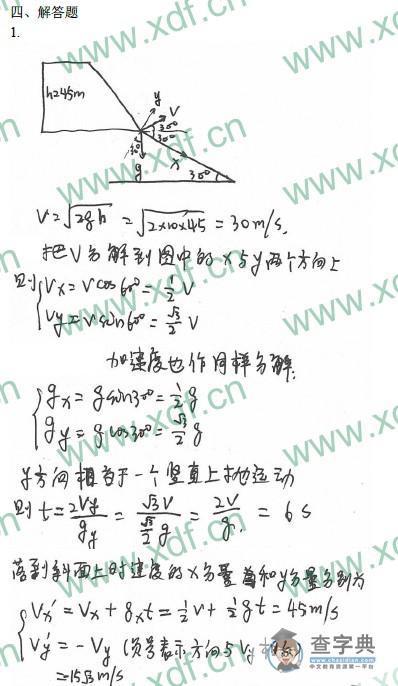 四、解答题
1.
h=45m
y
V
30°
30°
30°
x
g
30°
V=√2gh =√2×10×45 =30m/s.
把V分解到图中的x与y两个方向上
则{Vx=Vcos60°=½V
Vy=Vsin60°=√3/2 V
加速度也作同样分解.
{gx=gsin30°=½g
gy=gcos30°=√3/2 g
y方向相当于一个竖直上抛运动
则t=2Vy/gy=√3V/(√3/2 g)=2V/g=6s
落到斜面上时速度的x分量 和y分量分别为
{Vx'=Vx+gxt=½V+½gt=45m/s
Vy'=-Vy (负号表示方向与Vy相反)
=15√3m/s
www.xdf.cn
www.xdf.cn
www.xdf.cn
www.xdf.cn
www.xdf.cn
查字典
www.chazidian.com
中文教育资源第一平台